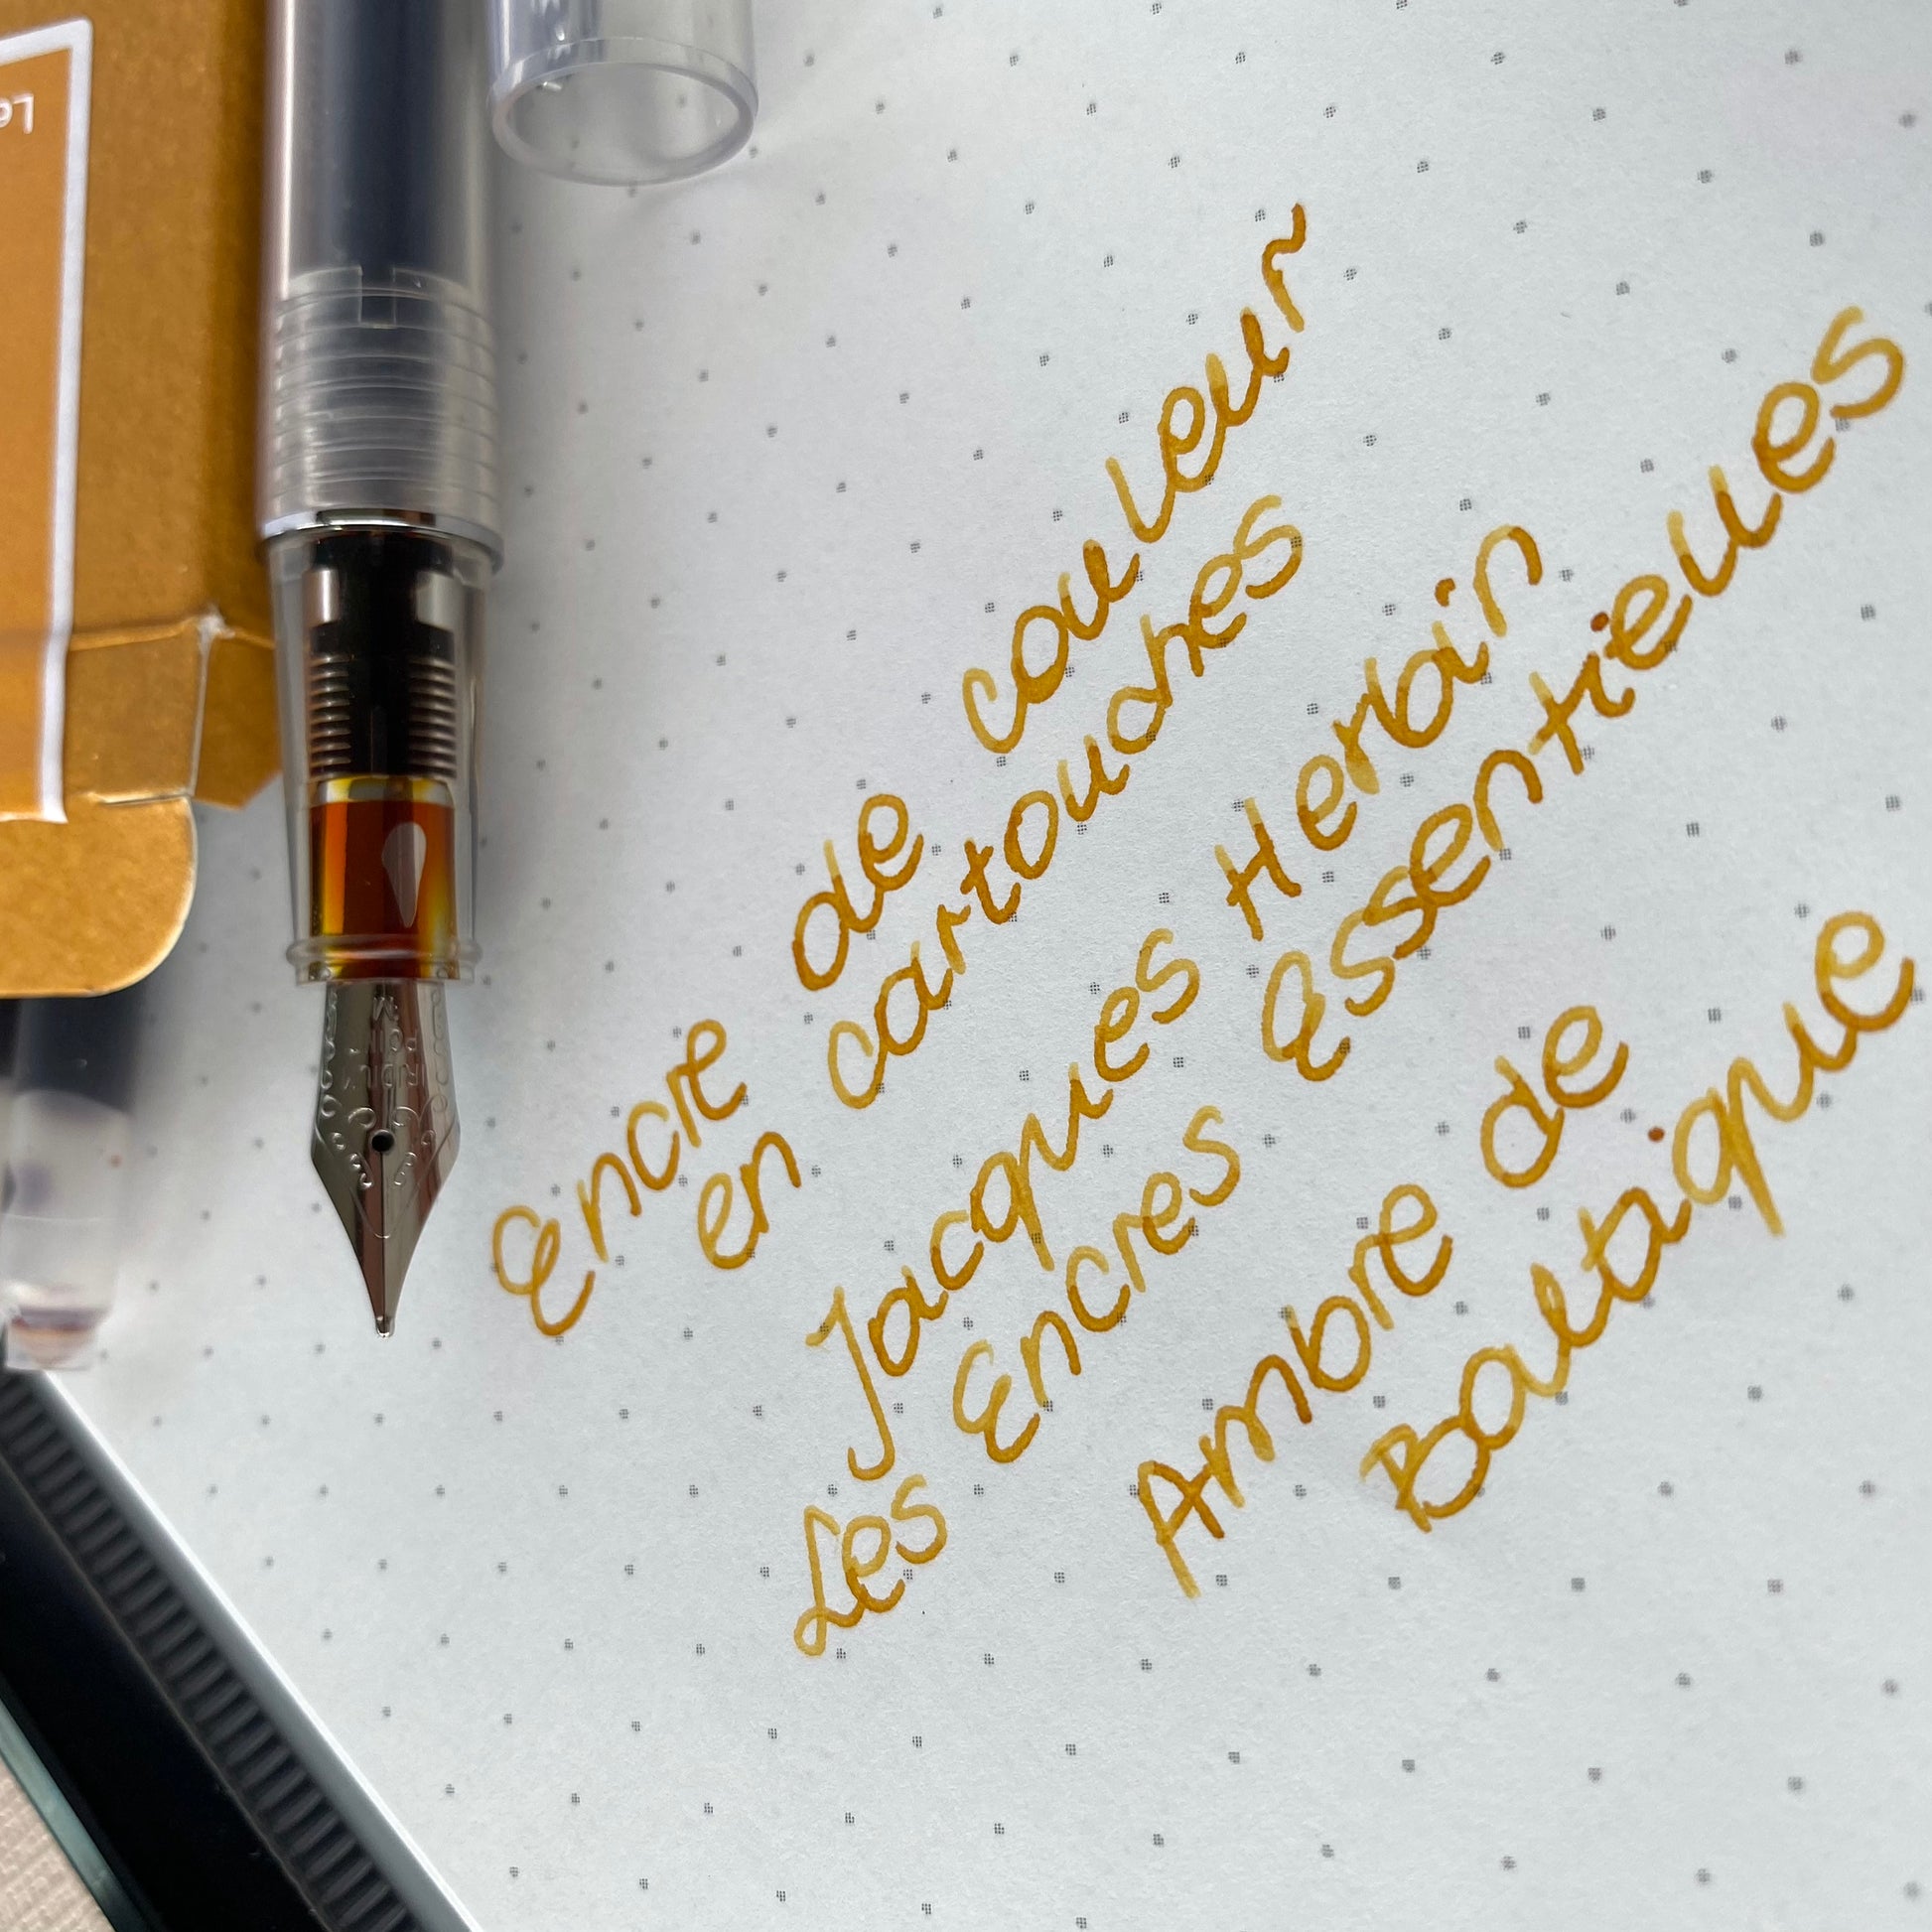 Encre de couleur
en cartouches
Jacques Herbin
Les Encres Essentielles
Ambre de
Baltique